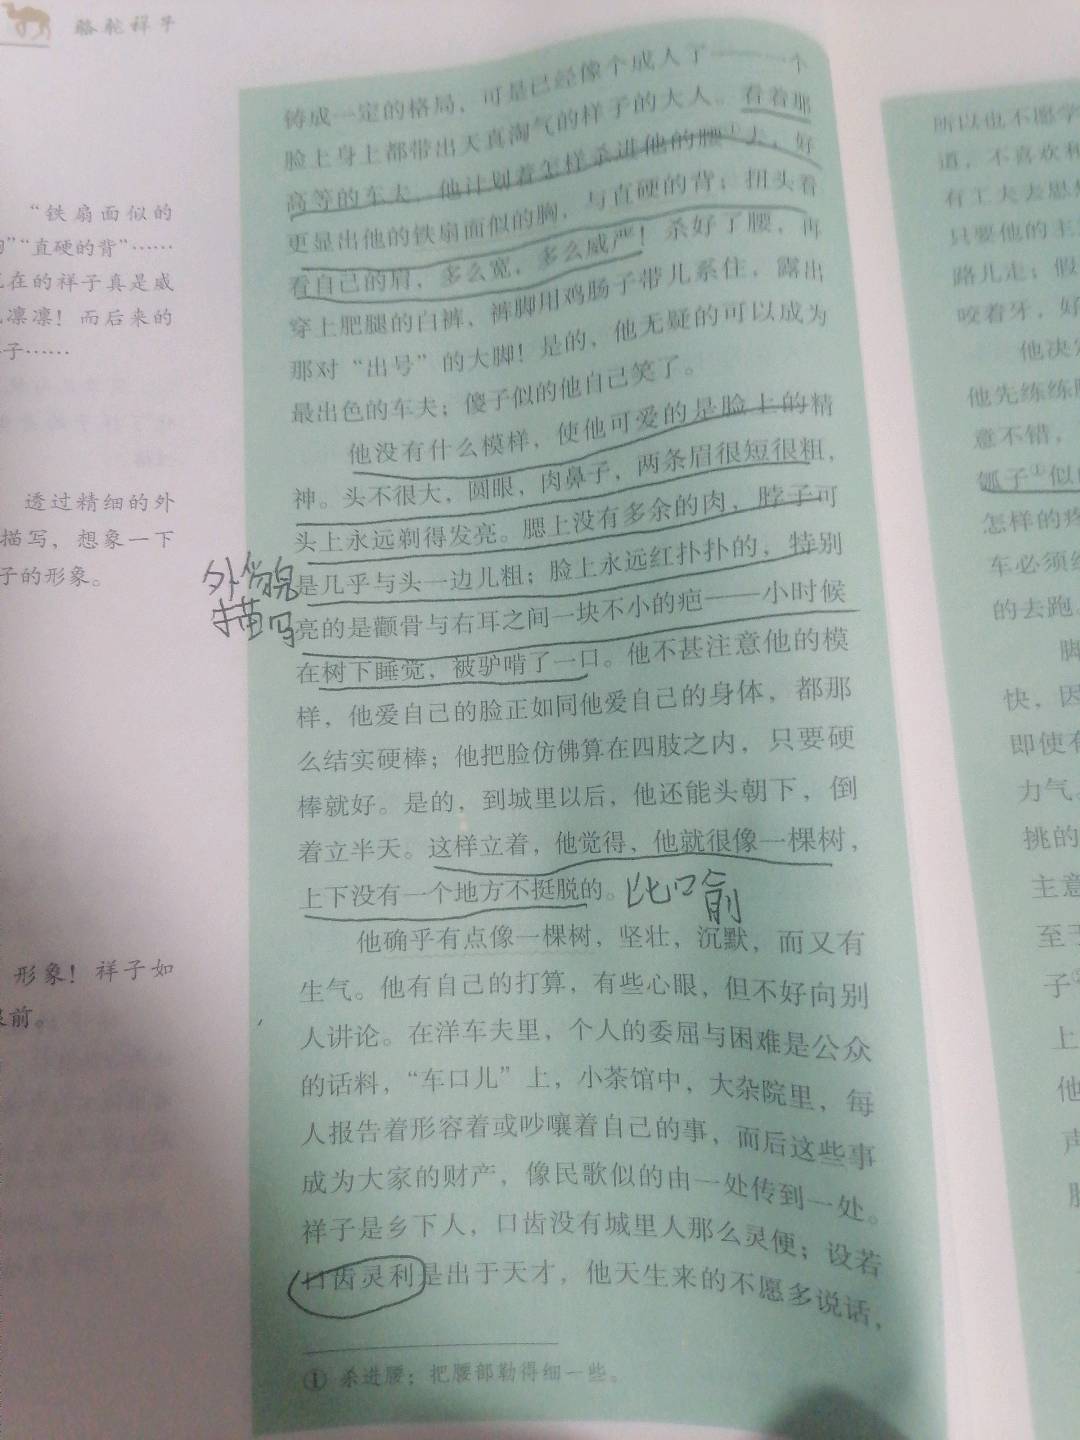 骆驼祥子
“铁扇面似的
”“直硬的背”……
在的祥子真是威
凛凛！而后来的
子……
透过精细的外
描写，想象一下
子的形象。
形象！祥子如
前。
铸成一定的格局，可是已经像个成人了——一个
脸上身上都带出天真淘气的样子的大人。看着那
高等的车夫，他计划着怎样杀进他的腰①去，好
更显出他的铁扇面似的胸，与直硬的背；扭头看
看自己的肩，多么宽，多么威严！杀好了腰，再
穿上肥腿的白裤，裤脚用鸡肠子带儿系住，露出
那对“出号”的大脚！是的，他无疑的可以成为
最出色的车夫；傻子似的他自己笑了。
他没有什么模样，使他可爱的是脸上的精
神。头不很大，圆眼，肉鼻子，两条眉很短很粗，
头上永远剃得发亮。腮上没有多余的肉，脖子可
是几乎与头一边儿粗；脸上永远红扑扑的，特别
亮的是颧骨与右耳之间一块不小的疤——小时候
在树下睡觉，被驴啃了一口。他不甚注意他的模
样，他爱自己的脸正如同他爱自己的身体，都那
么结实硬棒；他把脸仿佛算在四肢之内，只要硬
棒就好。是的，到城里以后，他还能头朝下，倒
着立半天。这样立着，他觉得，他就很像一棵树，
上下没有一个地方不挺脱的。
他确乎有点像一棵树，坚壮，沉默，而又有
生气。他有自己的打算，有些心眼，但不好向别
人讲论。在洋车夫里，个人的委屈与困难是公众
的话料，“车口儿”上，小茶馆中，大杂院里，每
人报告着形容着或吵嚷着自己的事，而后这些事
成为大家的财产，像民歌似的由一处传到一处。
祥子是乡下人，口齿没有城里人那么灵便；设若
口齿灵利是出于天才，他天生来的不愿多说话，
① 杀进腰：把腰部勒得细一些。
外貌
描写
比喻
所以也不愿学
道，不喜欢和
有工夫去思
只要他的主
路儿走；假
咬着牙，好
他决定
他先练练
意不错，
瓠子①似的
怎样的疼
车必须
的去跑
脚
快，因
即使有
力气
挑的
主意
至于
子
上
他